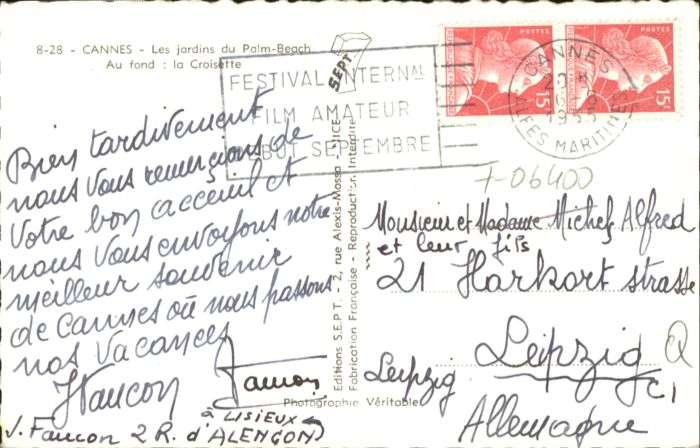 8-28 - CANNES - Les jardins du Palm-Beach
Au fond : la Croisette
SEPT
FESTIVAL INTERNAL
FILM AMATEUR
DÉBUT SEPTEMBRE
POSTES
15F
15F
CANNES
ALPES MARITIMES
+-06400
Bien tardivement
nous vous remercions de
Votre bon acceuil et
nous vous envoyons notre
meilleur souvenir
de Cannes où nous passons
nos vacances
JFaucon Faucon
J. Faucon 2 R. d'ALENÇON
à LISIEUX
Editions S.E.P.T. - 2, rue Alexis-Mossa - NICE
Fabrication Française - Reproduction Interdite
Photographie Véritable
Monsieur et Madame Michel Alfred
et leur fils
21 Harkort strasse
Leipzig Q
Leipzig C1
Allemagne